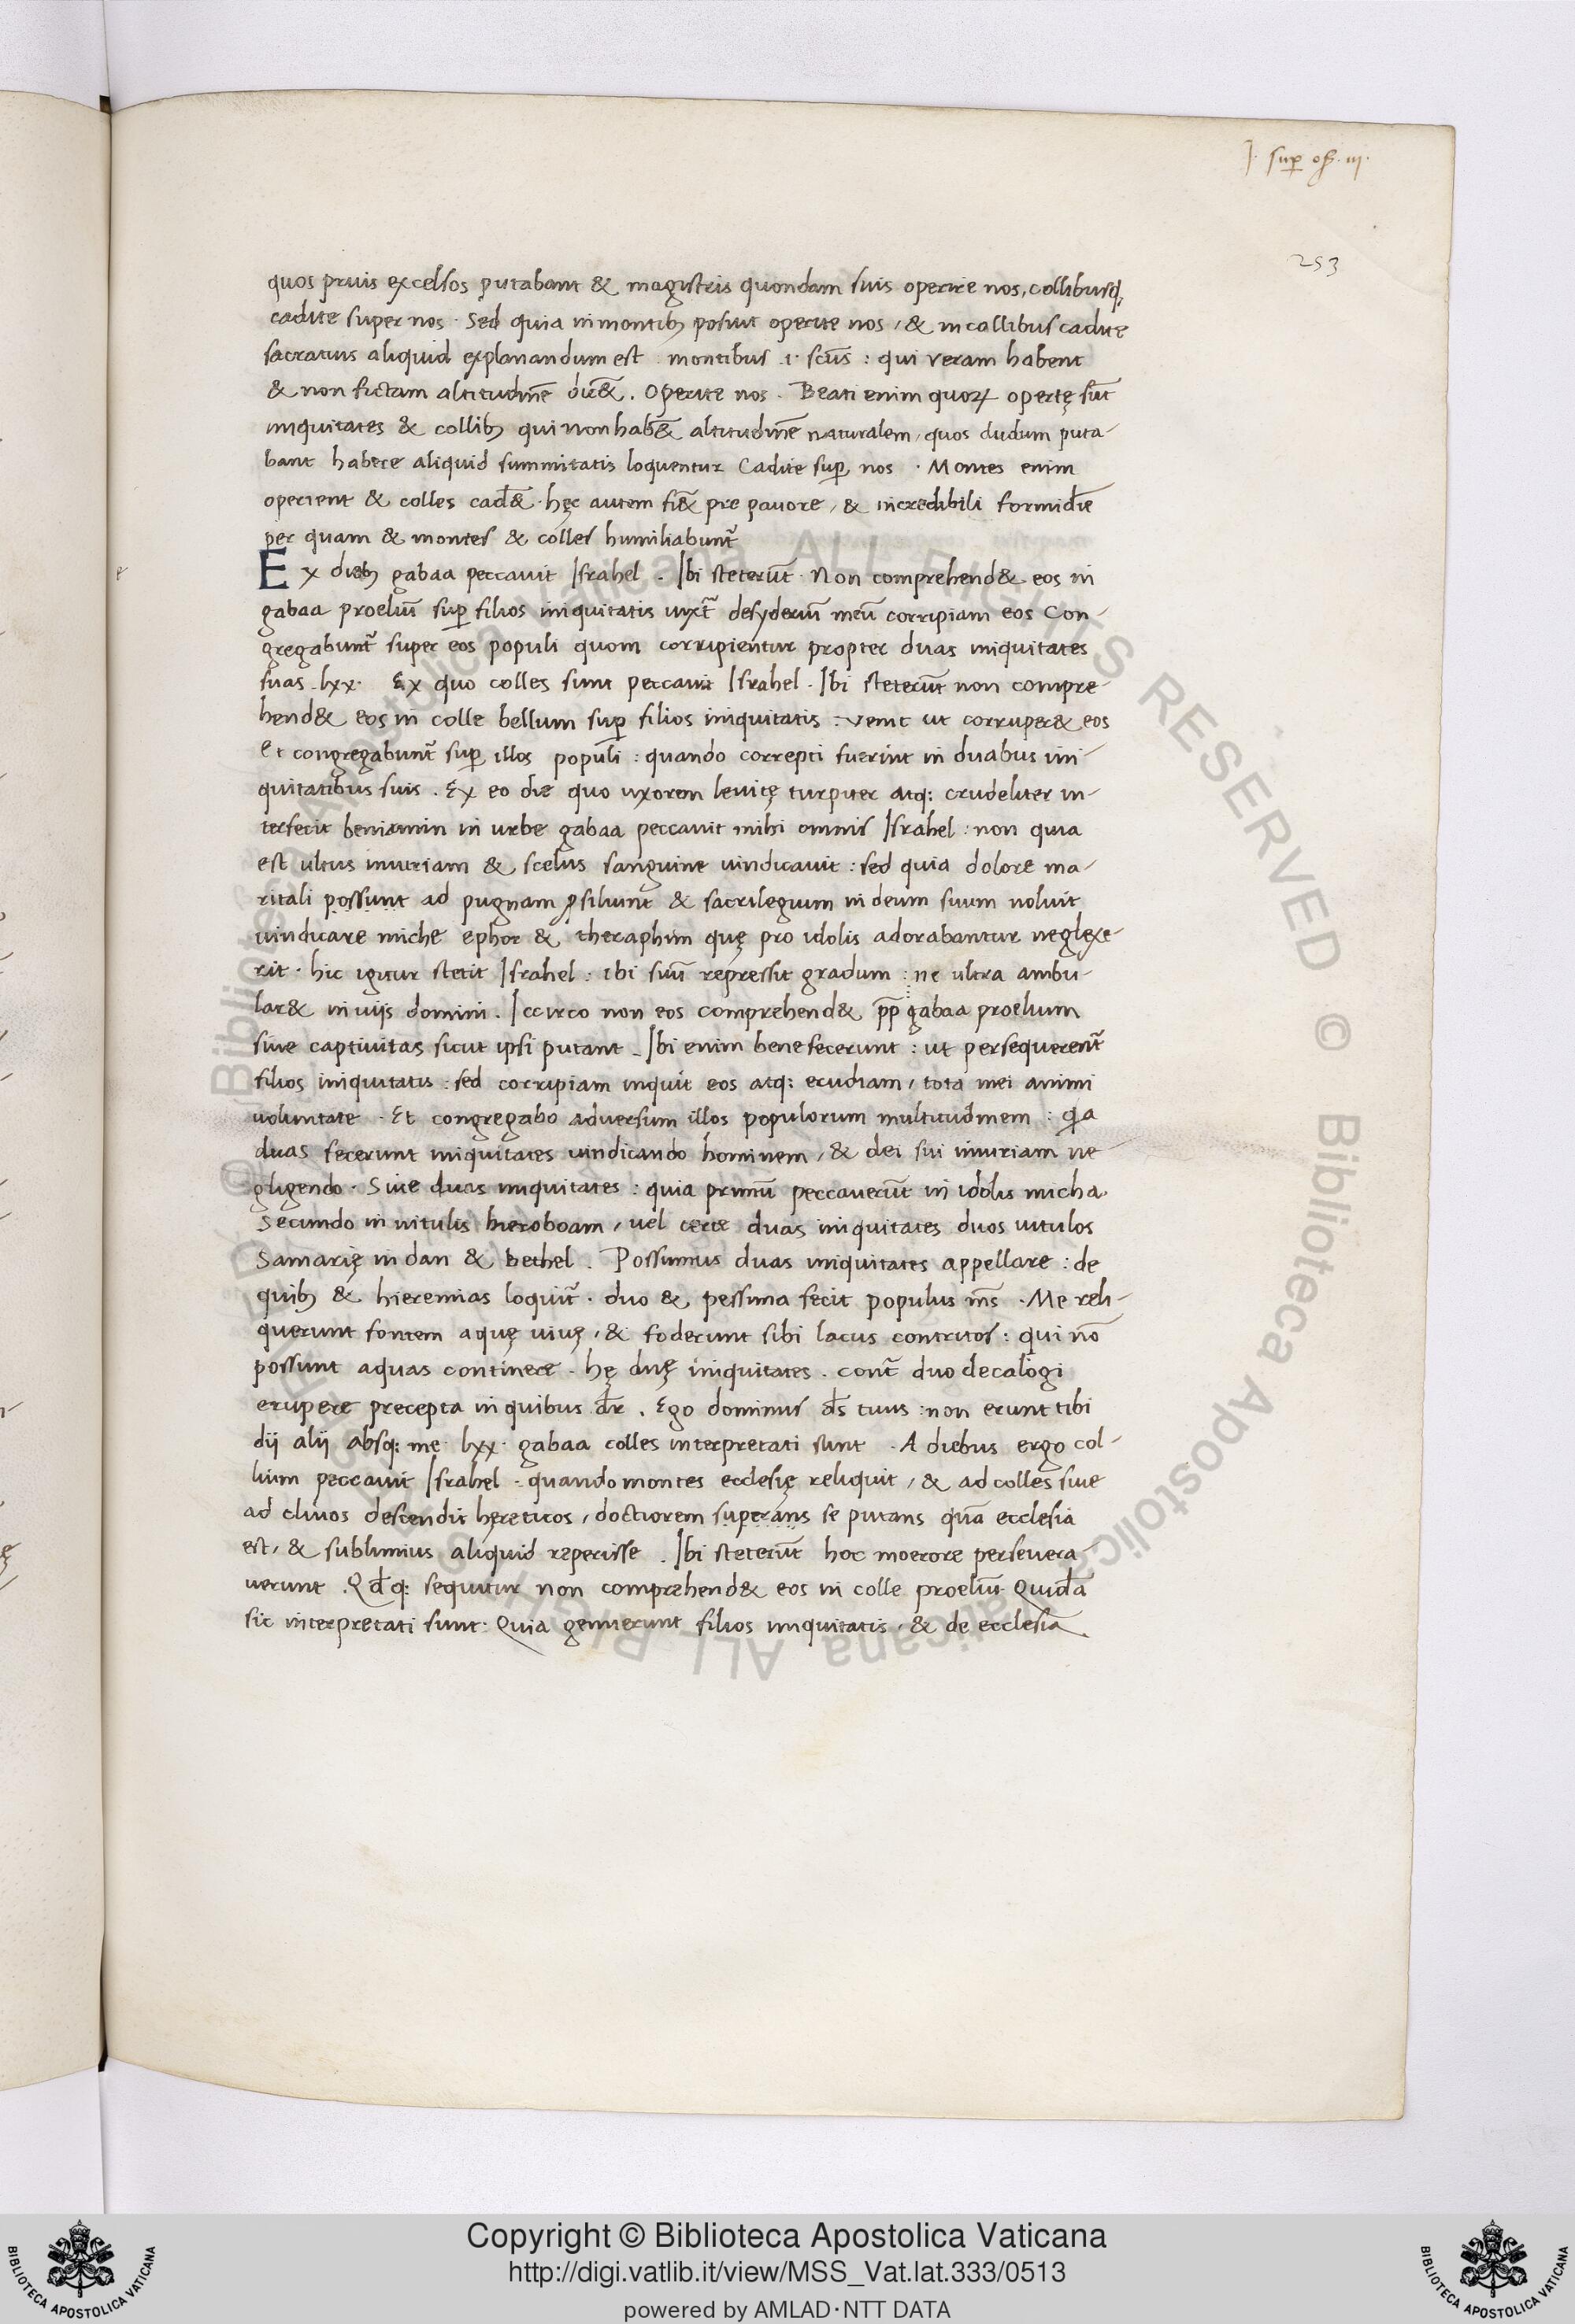 J. sup os. iij.
253
quos prius excelsos putabant & magistris quondam suis operire nos, collibusq;
cadite super nos. Sed quia in montib; posuit operite nos, & in collibus cadite
sacratius aliquid explanandum est. montibus .i. scūs : qui veram habent
& non fictam altitudinē dic̄&. Operite nos. Beati enim quoꝝ opertę sūt
iniquitates & collib; qui non hab̄& altitudinē naturalem, quos dudum puta-
bant habere aliquid summitatis loquentur Cadite suꝑ nos. Montes enim
operient & colles cad̄&. hęc autem fi& pre pauore, & incredibili formidīe
per quam & montes & colles humiliabunt̄
Ex dieb; gabaa peccauit Israhel. Ibi steterūt. Non comprehend& eos in
gabaa proeliū suꝑ filios iniquitatis iuxt̄ desyderiū meū corripiam eos Con-
gregabunt̄ super eos populi quom corripientur propter duas iniquitates
suas. lxx. Ex quo colles sunt peccauit Israhel. Ibi steterūt non compre-
hend& eos in colle bellum suꝑ filios iniquitatis : venit ut corriper& eos
Et congregabunt̄ suꝑ illos populi : quando correpti fuerint in duabus ini-
quitatibus suis. Ex eo die quo uxorem leuitę turpiter atq: crudeliter in-
terfecit beniamin in urbe gabaa peccauit mihi omnis Israhel : non quia
est ultus iniuriam & scelus sanguine uindicauit : sed quia dolore ma-
ritali possunt ad pugnam ꝓsiliunt & sacrilegium in deum suum noluit
uindicare miche ephot & theraphim quę pro idolis adorabantur neglexe-
rit. hic igitur stetit Israhel : ibi suū repressit gradum : ne ultra ambu-
lar& in uijs domini. Iccirco non eos comprehend& pp̄ gabaa proelium
siue captiuitas sicut ipsi putant. Ibi enim bene fecerunt : ut persequerent̄
filios iniquitatis : sed corripiam inquit eos atq: erudiam, tota mei animi
uoluntate. Et congregabo aduersum illos populorum multitudinem : qa
duas fecerunt iniquitates uindicando hominem, & dei sui iniuriam ne
gligendo. Siue duas iniquitates : quia primū peccauerūt in idolis micha.
Secundo in uitulis hieroboam, uel certe duas iniquitates duos uitulos
Samarię in dan & bethel. Possumus duas iniquitates appellare : de
quib; & hieremias loquit̄. duo & pessima fecit populus ms̄. Me reli-
querunt fontem aquę uiuę, & foderunt sibi lacus contritos : qui nō
possunt aquas continere. hę duę iniquitates. cont̄ duo decalogi
erupere precepta in quibus dr̄. Ego dominus ds̄ tuus : non erunt tibi
dij alij absq: me. lxx. gabaa colles interpretati sunt. A diebus ergo col-
lium peccauit Israhel. quando montes ecclesię reliquit, & ad colles siue
ad cliuos descendit hęreticos, doctiorem superans se putans quā ecclesia
est, & sublimius aliquid reperisse. Ibi steterūt hoc moerore perseuera-
uerunt. Qd̄q: sequitur non comprehend& eos in colle proeliū. Quidā
sic interpretati sunt: Quia genuerunt filios iniquitatis, & de ecclesia
Copyright © Biblioteca Apostolica Vaticana
http://digi.vatlib.it/view/MSS_Vat.lat.333/0513
powered by AMLAD·NTT DATA
BIBLIOTECA APOSTOLICA VATICANA
BIBLIOTECA APOSTOLICA VATICANA